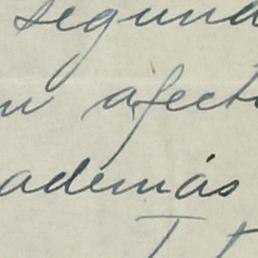 segund
n afect
además